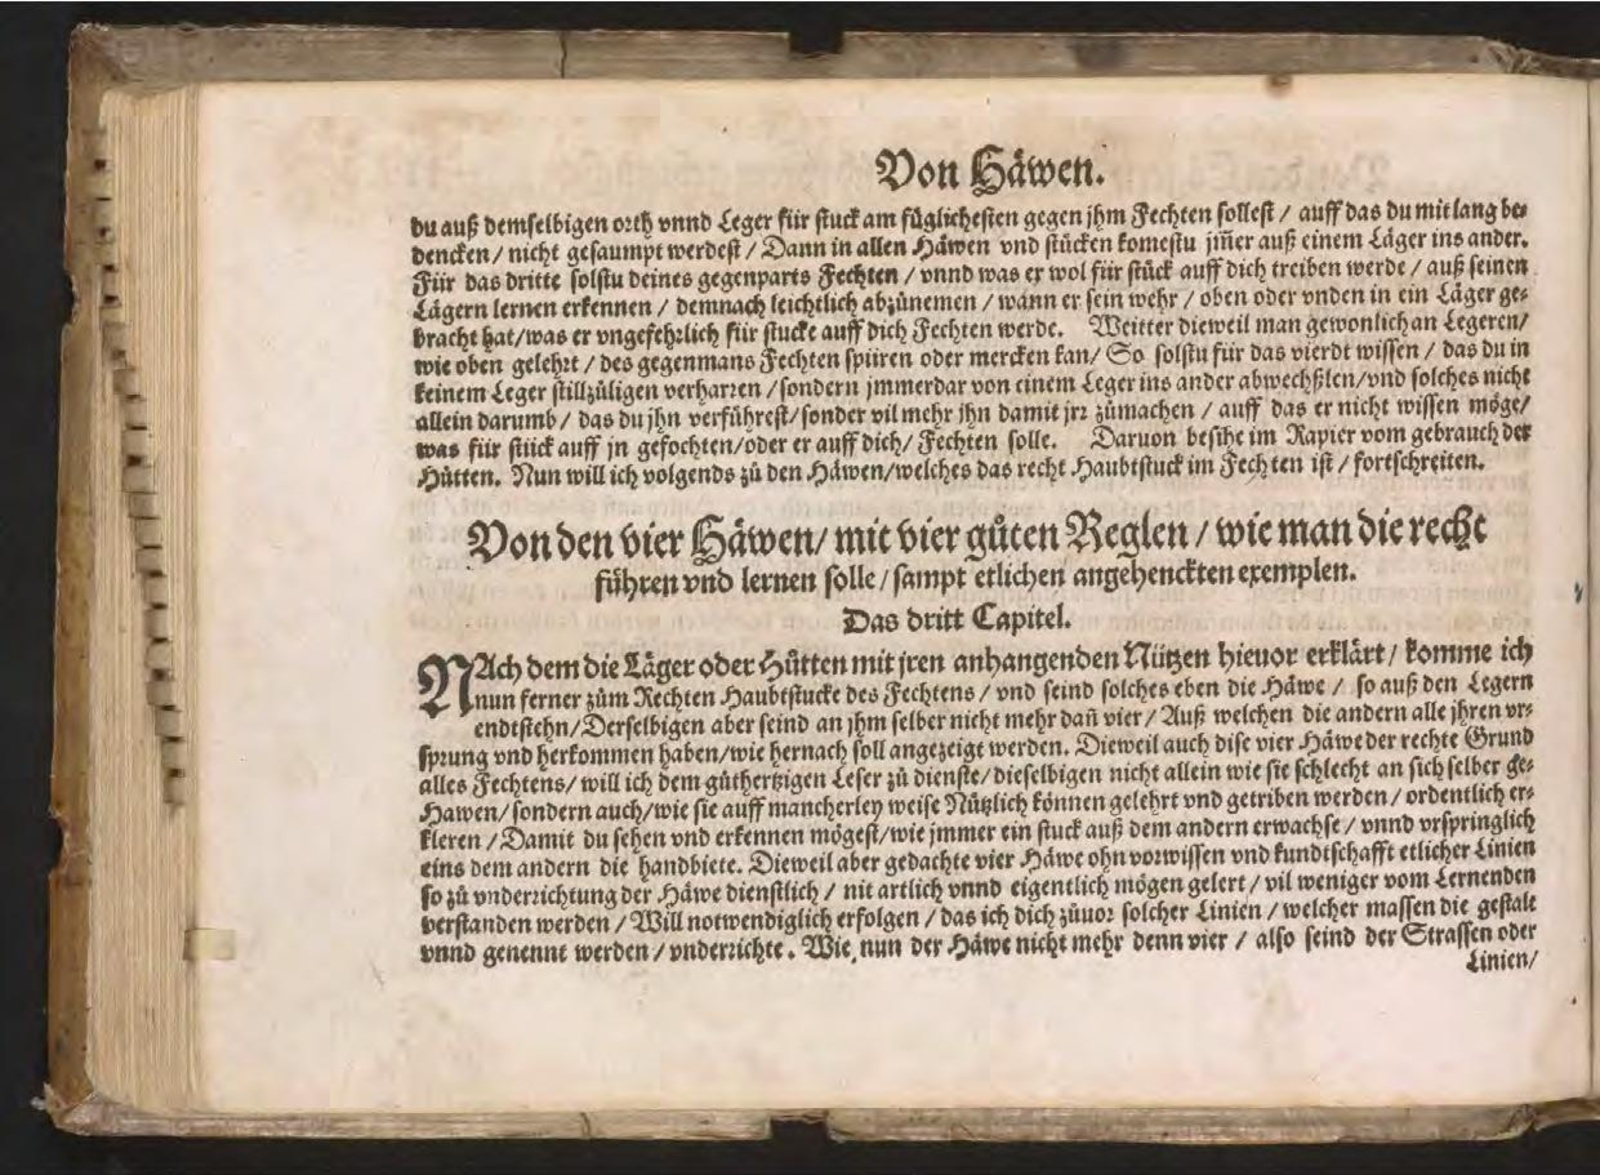 Von Häwen.
du auß demselbigen orth vnnd Leger für stuck am füglichesten gegen jhm Fechten sollest / auff das du mit lang be-
dencken / nicht gesaumpt werdest / Dann in allen Häwen vnd stücken komestu jm̃er auß einem Läger ins ander.
Für das dritte solstu deines gegenparts Fechten / vnnd was er wol für stück auff dich treiben werde / auß seinen
Lägern lernen erkennen / demnach leichtlich abzůnemen / wann er sein wehr / oben oder vnden in ein Läger ge-
bracht hat / was er vngefehrlich für stucke auff dich Fechten werde. Weitter dieweil man gewonlich an Legeren /
wie oben gelehrt / des gegenmans Fechten spüren oder mercken kan / So solstu für das vierdt wissen / das du in
keinem Leger stillzůligen verharren / sondern jmmerdar von einem Leger ins ander abwechßlen / vnd solches nicht
allein darumb / das du jhn verführest / sonder vil mehr jhn damit jrr zůmachen / auff das er nicht wissen möge /
was für stück auff jn gefochten / oder er auff dich / Fechten solle. Daruon besihe im Rapier vom gebrauch der
Hütten. Nun will ich volgends zů den Häwen / welches das recht Haubtstuck im Fechten ist / fortschreiten.
Von den vier Häwen / mit vier gůten Reglen / wie man die recht
führen vnd lernen solle / sampt etlichen angehenckten exemplen.
Das dritt Capitel.
NAch dem die Läger oder Hůtten mit jren anhangenden Nützen hieuor erklärt / komme ich
nun ferner zům Rechten Haubtstucke des Fechtens / vnd seind solches eben die Häwe / so auß den Legern
endtstehn / Derselbigen aber seind an jhm selber nicht mehr dañ vier / Auß welchen die andern alle jhren vr-
sprung vnd herkommen haben / wie hernach soll angezeigt werden. Dieweil auch dise vier Häwe der rechte Grund
alles Fechtens / will ich dem gůthertzigen Leser zů dienste / dieselbigen nicht allein wie sie schlecht an sich selber ge-
Hawen / sondern auch / wie sie auff mancherley weise Nützlich können gelehrt vnd getriben werden / ordentlich er-
kleren / Damit du sehen vnd erkennen mögest / wie jmmer ein stuck auß dem andern erwachse / vnnd vrspringlich
eins dem andern die handbiete. Dieweil aber gedachte vier Häwe ohn vorwissen vnd kundtschafft etlicher Linien
so zů vnderrichtung der Häwe dienstlich / nit artlich vnnd eigentlich mögen gelert / vil weniger vom Lernenden
verstanden werden / Will notwendiglich erfolgen / das ich dich zůuor solcher Linien / welcher massen die gestalt
vnnd genennt werden / vnderrichte. Wie nun der Häwe nicht mehr denn vier / also seind der Strassen oder
Linien /